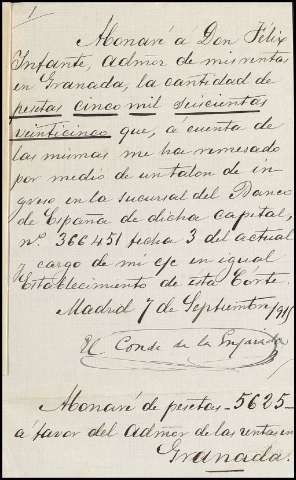 1
Abonaré á Don Félix
Infante, admor de mis rentas
en Granada, la cantidad de
pesetas cinco mil seiscientas
veinticinco que, á cuenta de
las mismas me ha remesado
por medio de un talon de in-
greso en la sucursal del Banco
de España de dicha capital,
nº 366451 fecha 3 del actual
y cargo de mi c/c en igual
Establecimiento de esta Córte.
Madrid 7 de Septiembre 1915
El Conde de la
Abonaré de pesetas - 5625 -
á favor del admor de las rentas en
Granada.